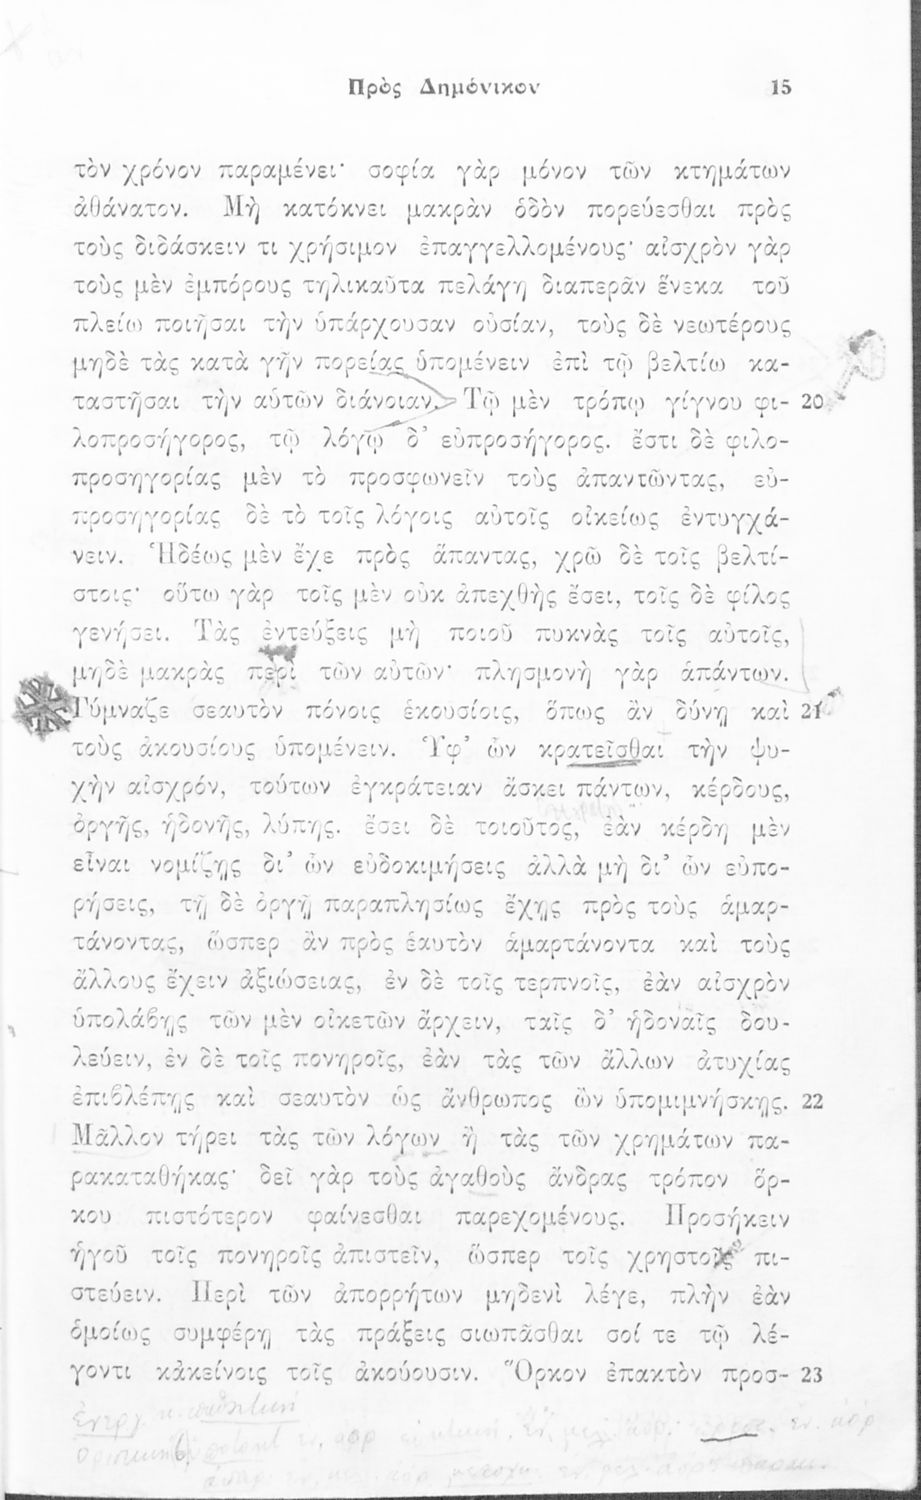 Πρὸς Δημόνικον 15
τὸν χρόνον παραμένει· σοφία γὰρ μόνον τῶν κτημάτων
ἀθάνατον. Μὴ κατόκνει μακρὰν ὁδὸν πορεύεσθαι πρὸς
τοὺς διδάσκειν τι χρήσιμον ἐπαγγελλομένους· αἰσχρὸν γὰρ
τοὺς μὲν ἐμπόρους τηλικαῦτα πελάγη διαπερᾶν ἕνεκα τοῦ
πλείω ποιῆσαι τὴν ὑπάρχουσαν οὐσίαν, τοὺς δὲ νεωτέρους
μηδὲ τὰς κατὰ γῆν πορείας ὑπομένειν ἐπὶ τῷ βελτίω κα-
ταστῆσαι τὴν αὑτῶν διάνοιαν. Τῷ μὲν τρόπῳ γίγνου φι- 20
λοπροσήγορος, τῷ λόγῳ δ’ εὐπροσήγορος. ἔστι δὲ φιλο-
προσηγορίας μὲν τὸ προσφωνεῖν τοὺς ἀπαντῶντας, εὐ-
προσηγορίας δὲ τὸ τοῖς λόγοις αὐτοῖς οἰκείως ἐντυγχά-
νειν. Ἡδέως μὲν ἔχε πρὸς ἅπαντας, χρῶ δὲ τοῖς βελτί-
στοις· οὕτω γὰρ τοῖς μὲν οὐκ ἀπεχθὴς ἔσει, τοῖς δὲ φίλος
γενήσει. Τὰς ἐντεύξεις μὴ ποιοῦ πυκνὰς τοῖς αὐτοῖς,
μηδὲ μακρὰς περὶ τῶν αὐτῶν· πλησμονὴ γὰρ ἁπάντων.
Γύμναζε σεαυτὸν πόνοις ἑκουσίοις, ὅπως ἂν δύνῃ καὶ 21
τοὺς ἀκουσίους ὑπομένειν. Ὑφ’ ὧν κρατεῖσθαι τὴν ψυ-
χὴν αἰσχρόν, τούτων ἐγκράτειαν ἄσκει πάντων, κέρδους,
ὀργῆς, ἡδονῆς, λύπης. ἔσει δὲ τοιοῦτος, ἐὰν κέρδη μὲν
εἶναι νομίζῃς δι’ ὧν εὐδοκιμήσεις ἀλλὰ μὴ δι’ ὧν εὐπο-
ρήσεις, τῇ δὲ ὀργῇ παραπλησίως ἔχῃς πρὸς τοὺς ἁμαρ-
τάνοντας, ὥσπερ ἂν πρὸς ἑαυτὸν ἁμαρτάνοντα καὶ τοὺς
ἄλλους ἔχειν ἀξιώσειας, ἐν δὲ τοῖς τερπνοῖς, ἐὰν αἰσχρὸν
ὑπολάβῃς τῶν μὲν οἰκετῶν ἄρχειν, ταῖς δ’ ἡδοναῖς δου-
λεύειν, ἐν δὲ τοῖς πονηροῖς, ἐὰν τὰς τῶν ἄλλων ἀτυχίας
ἐπιβλέπῃς καὶ σεαυτὸν ὡς ἄνθρωπος ὢν ὑπομιμνήσκῃς. 22
Μᾶλλον τήρει τὰς τῶν λόγων ἢ τὰς τῶν χρημάτων πα-
ρακαταθήκας· δεῖ γὰρ τοὺς ἀγαθοὺς ἄνδρας τρόπον ὅρ-
κου πιστότερον φαίνεσθαι παρεχομένους. Προσήκειν
ἡγοῦ τοῖς πονηροῖς ἀπιστεῖν, ὥσπερ τοῖς χρηστοῖς πι-
στεύειν. Περὶ τῶν ἀπορρήτων μηδενὶ λέγε, πλὴν ἐὰν
ὁμοίως συμφέρῃ τὰς πράξεις σιωπᾶσθαι σοί τε τῷ λέ-
γοντι κἀκείνοις τοῖς ἀκούουσιν. Ὅρκον ἐπακτὸν προσ- 23